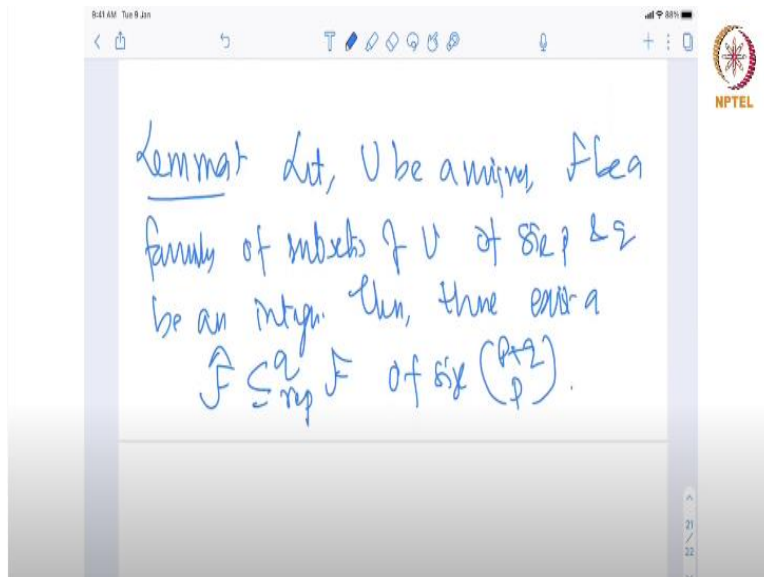 9:41 AM Tue 9 Jan
88%
NPTEL
Lemma Let, U be a univ, F be a
family of subsets of U of size p & q
be an integr. Then, there exist a
F̂ ⊆^q_rep F of size (p+q p).
21
/
22